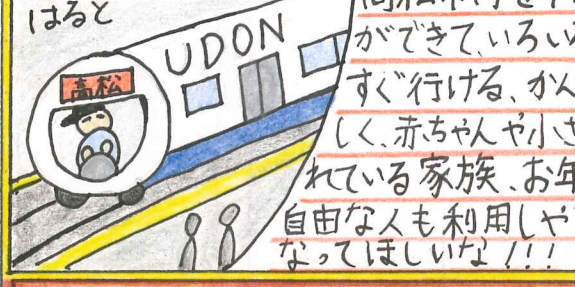 はると
UDON
高松
ができて、いろい
すぐ行ける、かん
しく、赤ちゃんや小さ
れている家族、お年
自由な人も利用しや
なってほしいな!!!